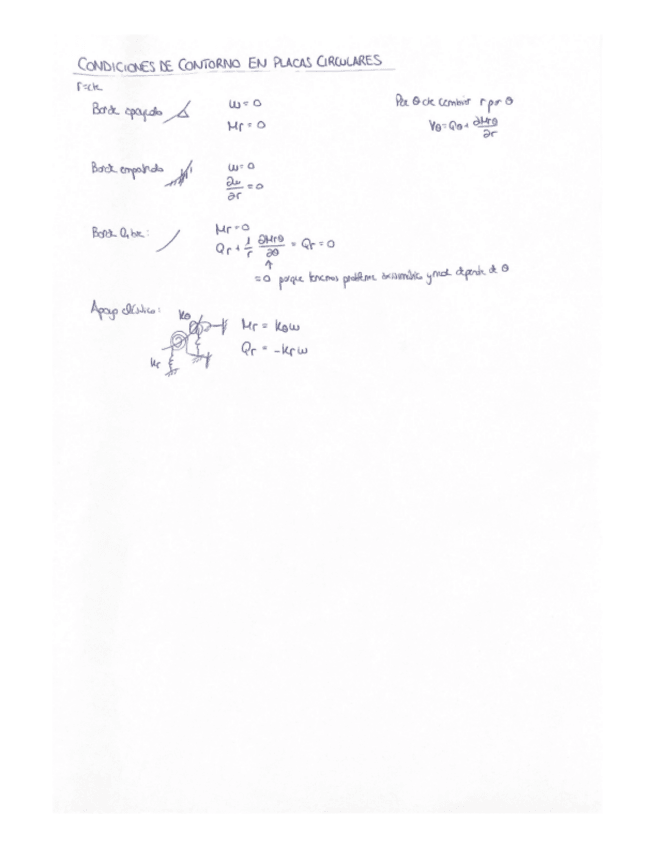 CONDICIONES DE CONTORNO EN PLACAS CIRCULARES
r=cte
Borde apoyado
w = 0
Mr = 0
Para θ cte cambiar r por θ
Vθ = Qθ + ∂Mrθ/∂r
Borde empotrado
w = 0
∂w/∂r = 0
Borde libre:
Mr = 0
Qr + 1/r ∂Mrθ/∂θ = Qr = 0
= 0 porque tenemos problema axisimétrico y nada depende de θ
Apoyo elástico:
kθ
kr
Mr = kθw
Qr = -krw